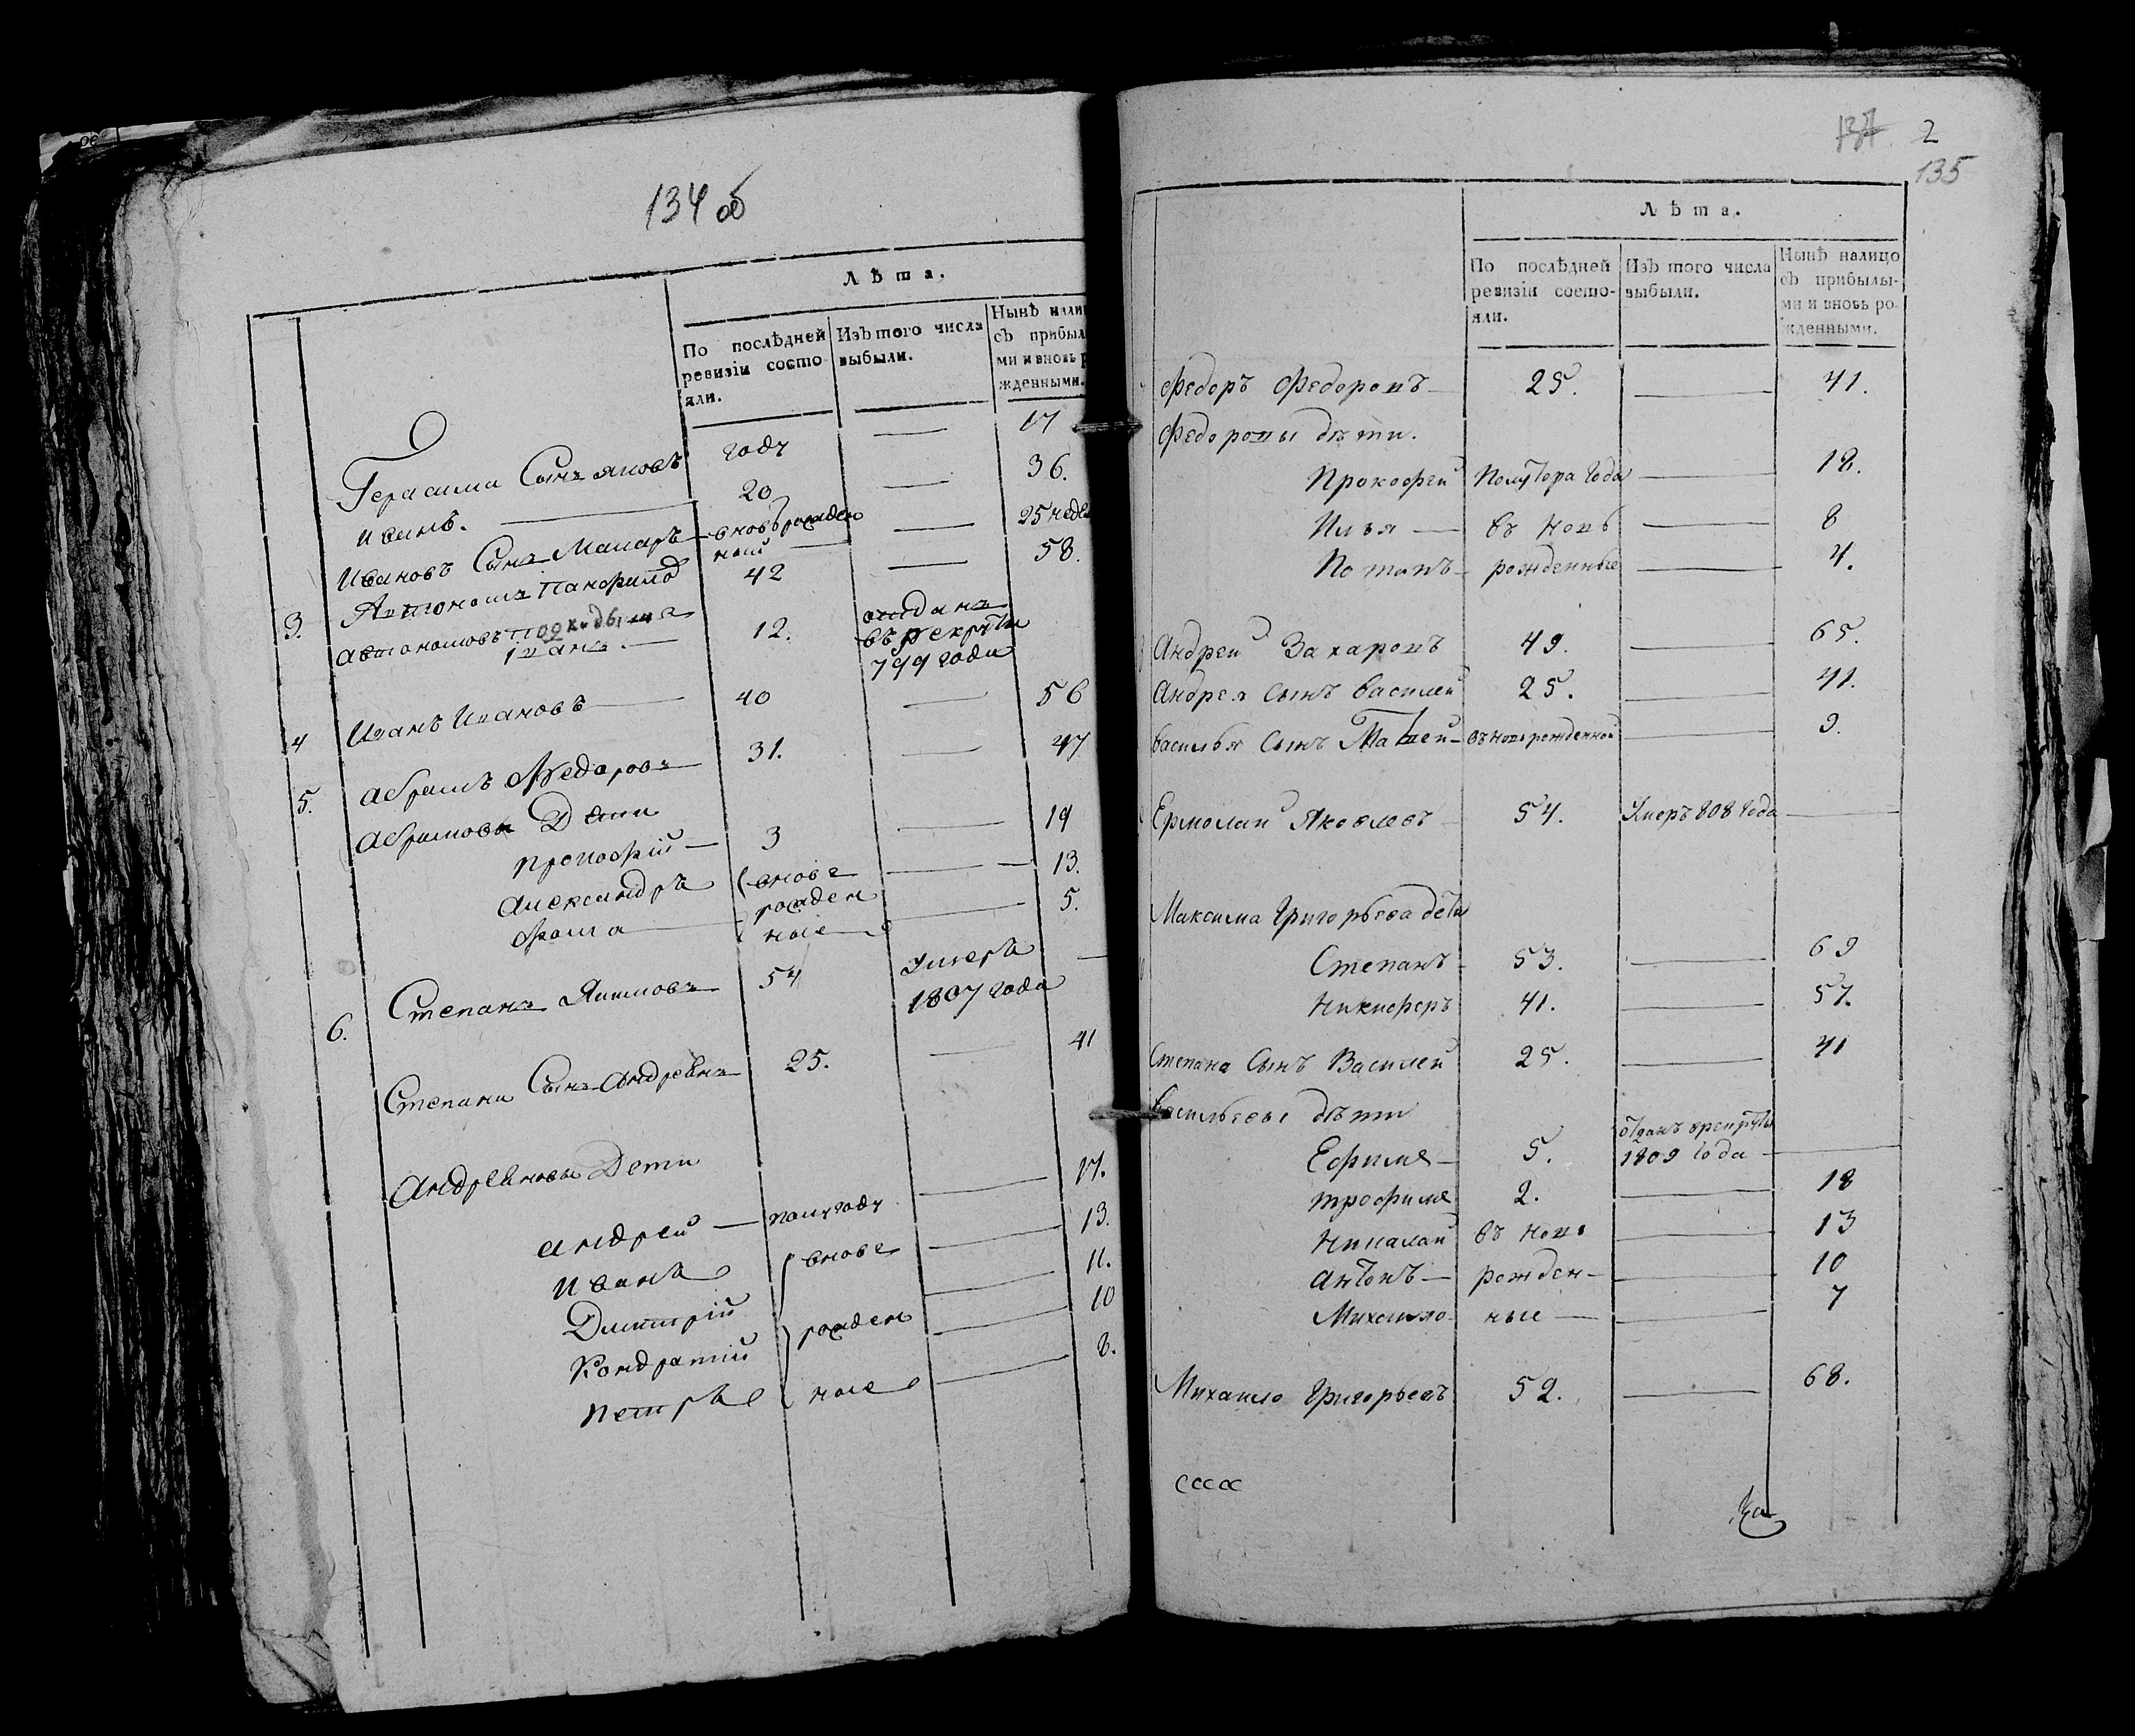 134 об
Лѣта.
По послѣдней ревизіи состояли.
Изъ того числа выбыли.
Нынѣ нали
съ прибыл
ми и вновь р
жденными.
Герасима Сынъ яковъ году — 17
иванъ. — 20 — 36.
Ивановъ Сынъ Макаръ вновърожденный — 25 неде
3. Артономъ Панфилов 42 — 58.
автономовъ подкидыша іванъ. — 12. отданъ въ рекруты 799 года
4 Иванъ Ивановъ — 40 — 56
5. абрамъ Федоровъ 31. — 47
абрамовы Дети
прокофій — 3 — 19
александръ вновь — 13.
фома рожденные — 5.
6. Степанъ Якимовъ 54 умеръ 1807 года —
Степана Сынъ андреянъ 25. — 41
андреяновы Дети
андрей — полугоду — 17.
иванъ вновь — 13.
Дмитрій — 11.
Кондратій рожден — 10
петръ ные — 8.
137 2
135
Лѣта.
По послѣдней ревизіи состояли.
Изъ того числа выбыли.
Нынѣ налицо съ прибылыми и вновь рожденными.
Федоръ Федоровъ — 25. — 41.
Федоровы дѣти.
Прокофей Полутора года — 18.
Илья — въ новь — 8
Потапъ — рожденные — 4.
Андрей Захаровъ 49. — 65.
Андрея сынъ василей 25. — 41.
василья сынъ Матвей — въновьрожденной — 9.
Ермолай Яковлевъ — 54. Умеръ 808 года —
Максима Григорьева дети
Степанъ — 53. — 69
Никифоръ 41. — 57.
Степана Сынъ Василей 25. — 41
васильевы дѣти
Ефимъ — 5. отданъ врекруты 1809 года —
трофимъ 2. — 18
Николай въ новь — 13
антонъ — рожден — 10
Михайло — ные — 7
Михайло Григорьевъ 52. — 68.